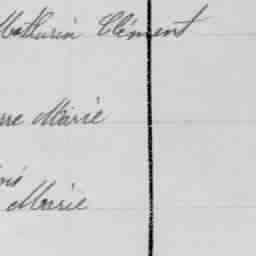 Mathurin Clément
rre Marie
Marie